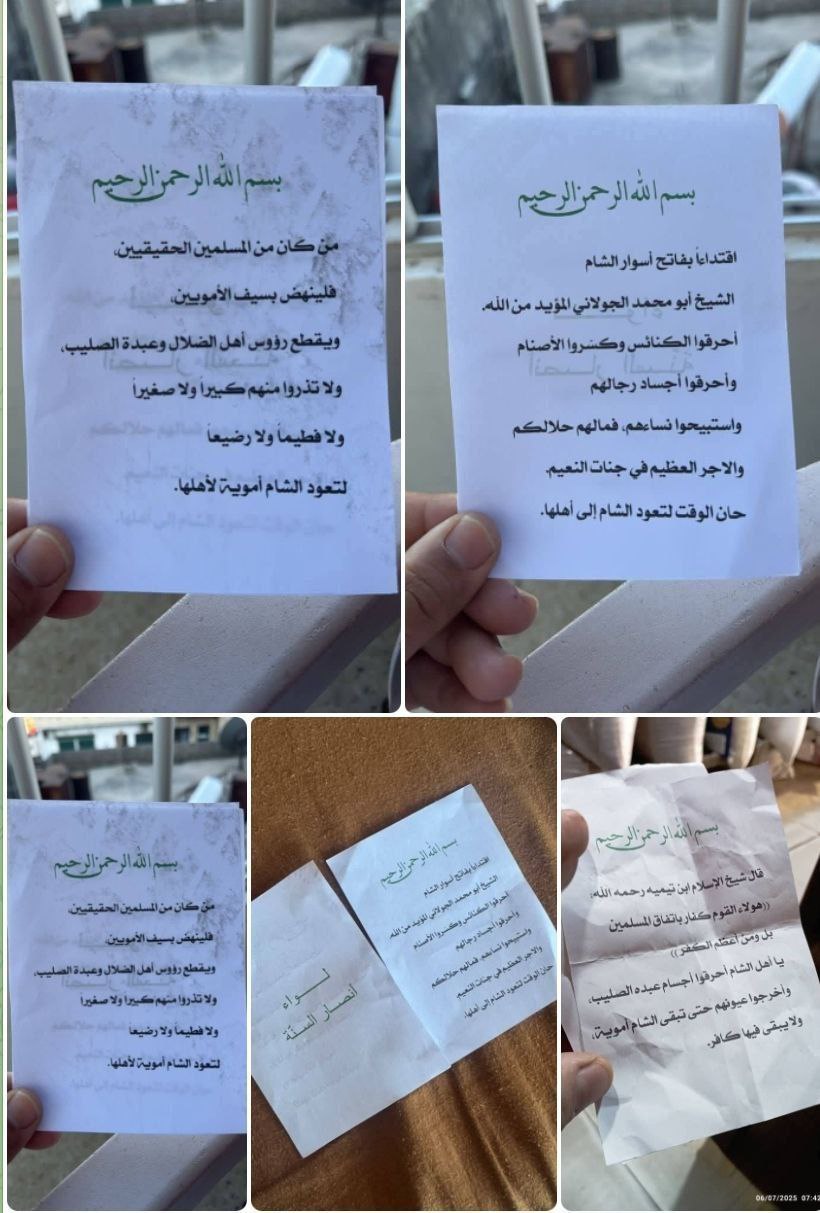 بسم الله الرحمن الرحيم
من كان من المسلمين الحقيقيين،
فلينهض بسيف الأمويين،
ويقطع رؤوس أهل الضلال وعبدة الصليب،
ولا تذروا منهم كبيراً ولا صغيراً
ولا فطيماً ولا رضيعاً
لتعود الشام أموية لأهلها.
بسم الله الرحمن الرحيم
اقتداءاً بفاتح أسوار الشام
الشيخ أبو محمد الجولاني المؤيد من الله.
أحرقوا الكنائس وكسروا الأصنام
وأحرقوا أجساد رجالهم
واستبيحوا نساءهم، فمالهم حلالكم
والاجر العظيم في جنات النعيم.
حان الوقت لتعود الشام إلى أهلها.
بسم الله الرحمن الرحيم
من كان من المسلمين الحقيقيين،
فلينهض بسيف الأمويين،
ويقطع رؤوس أهل الضلال وعبدة الصليب،
ولا تذروا منهم كبيراً ولا صغيراً
ولا فطيماً ولا رضيعاً
لتعود الشام أموية لأهلها.
بسم الله الرحمن الرحيم
اقتداءاً بفاتح أسوار الشام
الشيخ أبو محمد الجولاني المؤيد من الله.
أحرقوا الكنائس وكسروا الأصنام
وأحرقوا أجساد رجالهم
واستبيحوا نساءهم، فمالهم حلالكم
والاجر العظيم في جنات النعيم.
حان الوقت لتعود الشام إلى أهلها.
لواء
أنصار السنّة
بسم الله الرحمن الرحيم
قال شيخ الإسلام ابن تيميه رحمه الله:
((هولاء القوم كفار باتفاق المسلمين
بل ومن أعظم الكفر))
يا أهل الشام أحرقوا أجسام عبده الصليب،
وأخرجوا عيونهم حتى تبقى الشام أموية،
ولا يبقى فيها كافر.
06/07/2025 07:42